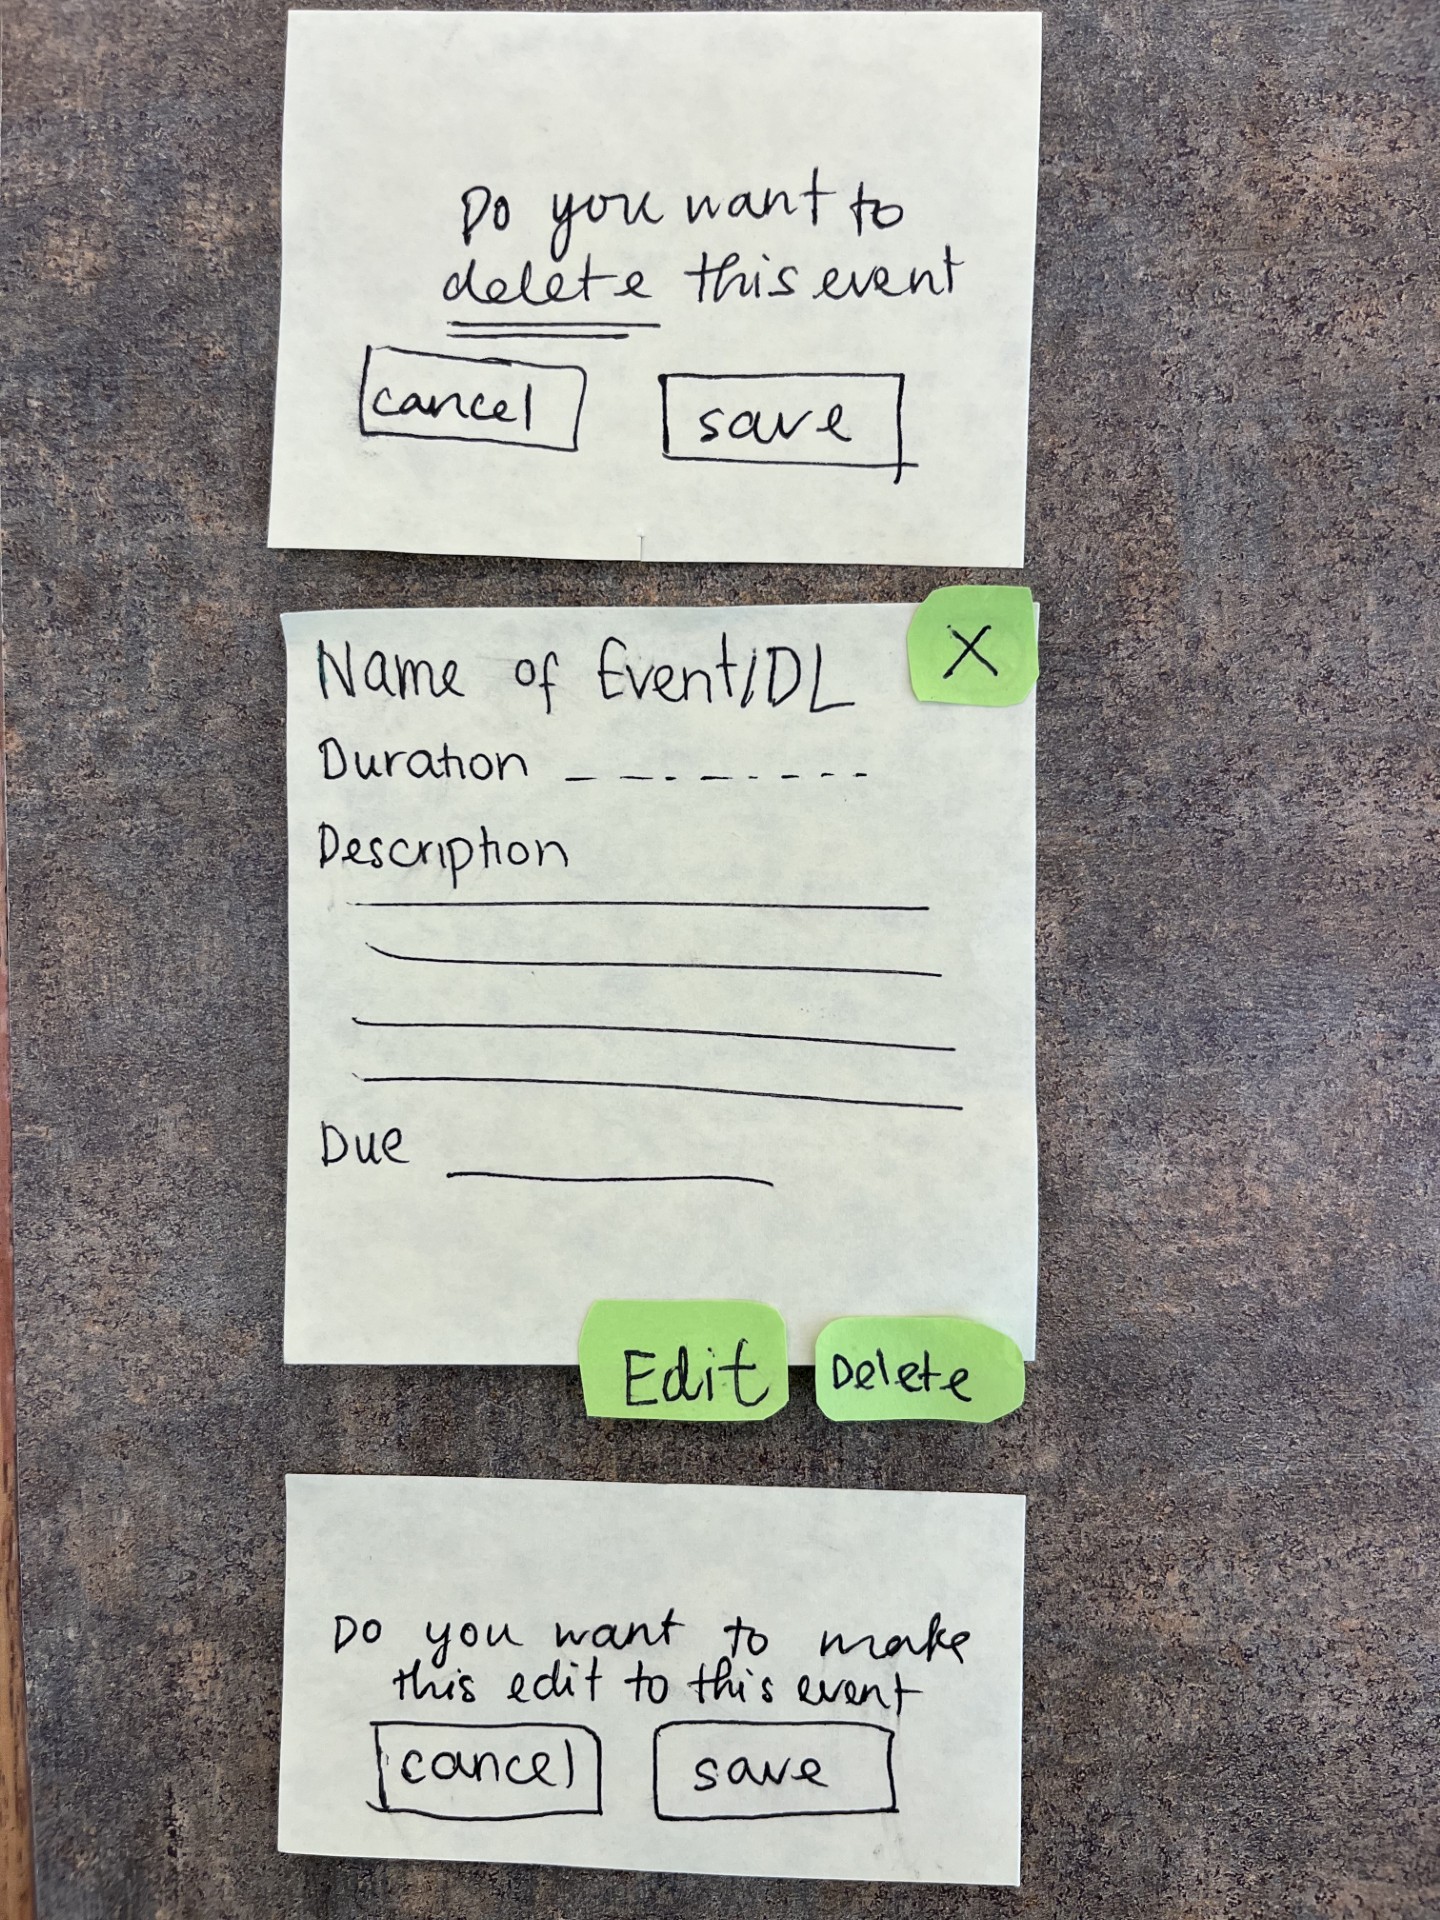 Do you want to
delete this event
cancel save
Name of Event/DL X
Duration
Description
Due
Edit Delete
Do you want to make
this edit to this event
cancel save